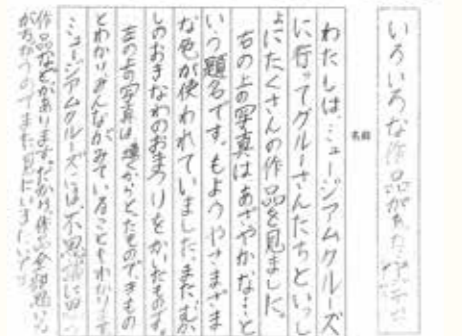 いろいろな作品があった
名前
わたしは、ミュージアムクルーズ
に行ってグルーさんたちといっし
ょにたくさんの作品を見ました。
右の上の写真はあざやかな…と
いう題名です。もようやさまざま
な色が使われていました。またむか
しのおきなわのおまつりをかいたものです。
左の上の写真は、遠からとたものできもの
とわかりみんながみていることもわかります
ミュージアムクルーズには不思議な
作品などがあります。だから作品全部
がちがうのでまた見にいきたいです